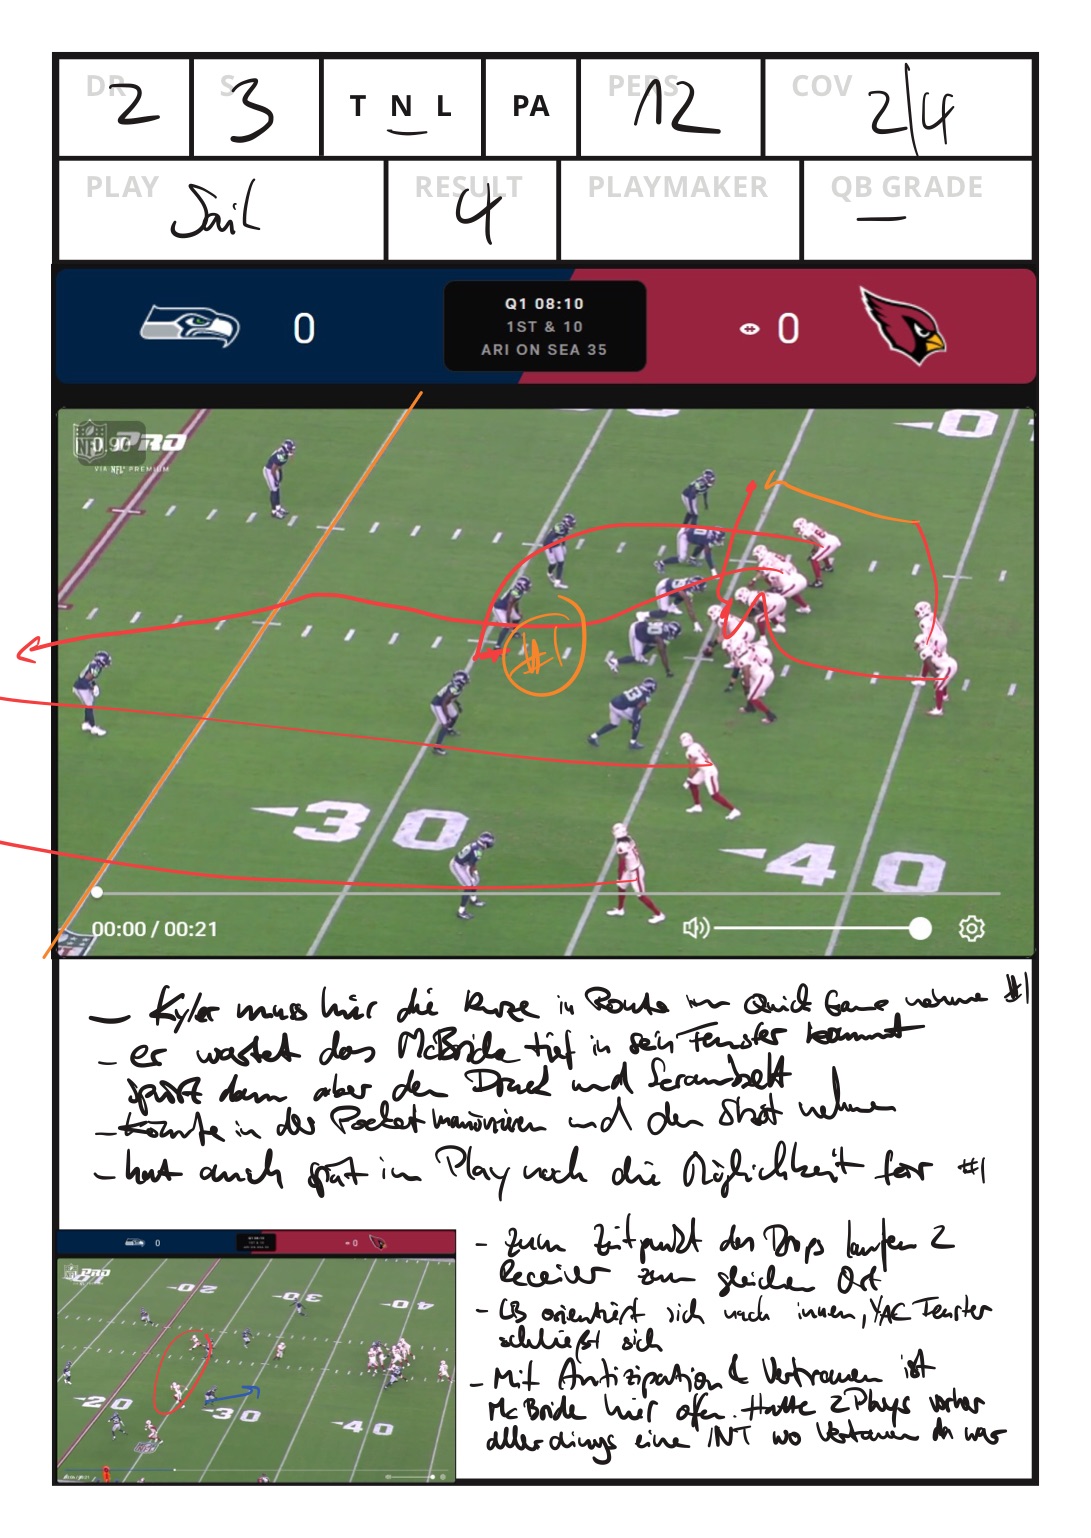 DR 2
S 3
T N L
PA
PERS 12
COV 2/4
PLAY Sail
RESULT 4
PLAYMAKER
QB GRADE —
0
Q1 08:10
1ST & 10
ARI ON SEA 35
0
NFL PRO
0.90
VIA NFL+ PREMIUM
#1
3 0
4 0
00:00 / 00:21
— Kyler muss hier die kurze in Route im Quick Game nehme #1
- er wartet das McBride tief in sein Fenster kommt
spürt dann aber den Druck und Scrambelt
- könnte in der Pocket manövrieren und den Shot nehmen
- hat auch spät im Play noch die Möglichkeit für #1
- zum Zeitpunkt des Drops laufen 2
Receiver zum gleichen Ort
- CB orientiert sich nach innen, YAC Fenster
schließt sich
- Mit Antizipation & Vertrauen ist
McBride hier offen. Hatte 2 Plays vorher
allerdings eine INT wo Vertrauen da war
0
0
PRO
20
30
40
20
30
40